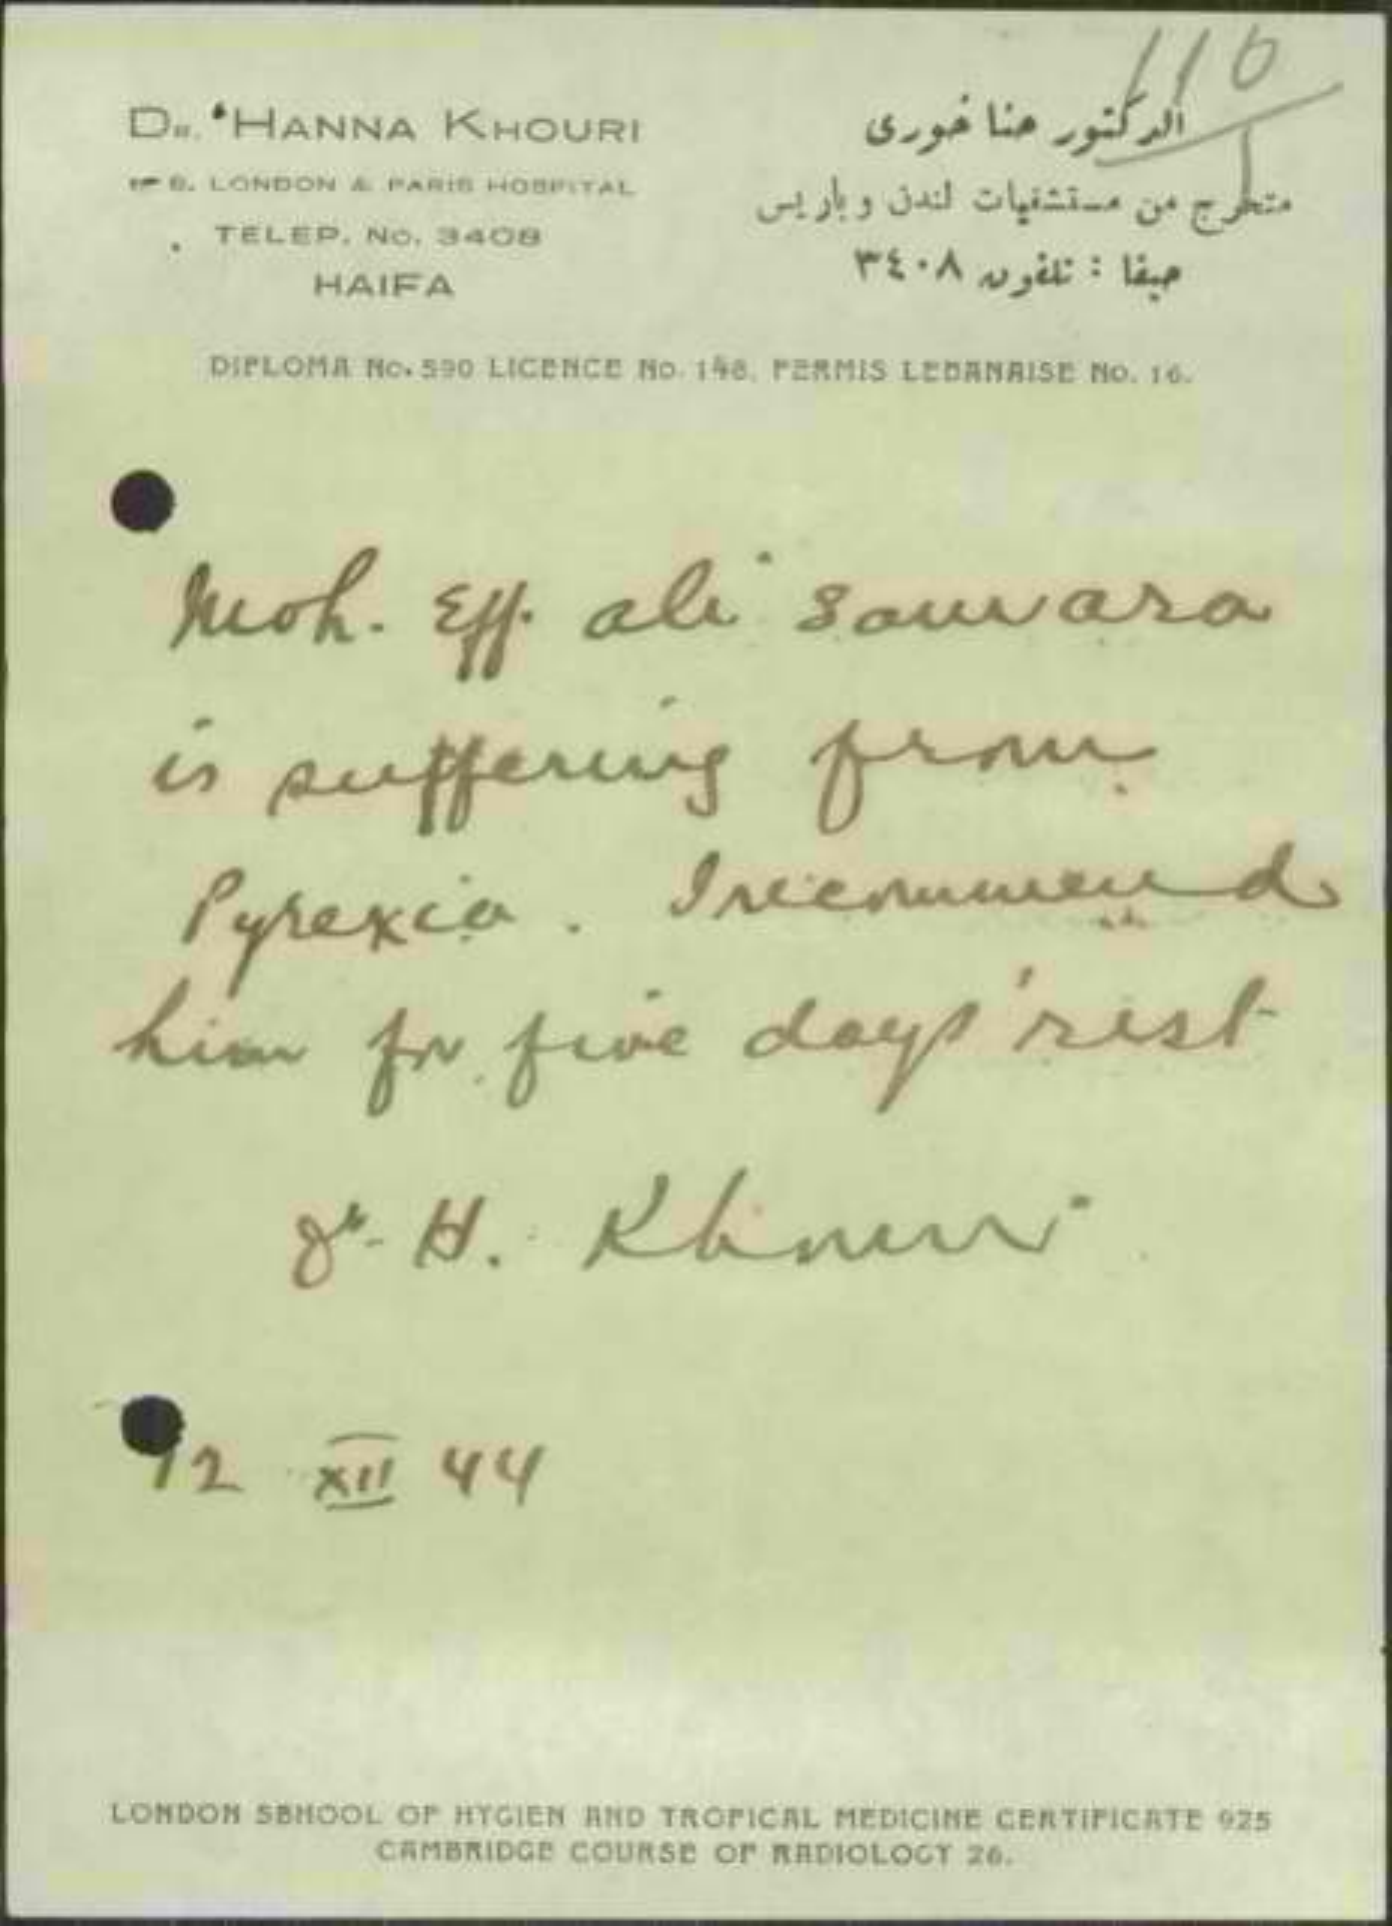 116
DR. HANNA KHOURI
LONDON & PARIS HOSPITAL
TELEP. No. 3408
HAIFA
الدكتور حنا خوري
متخرج من مستشفيات لندن وباريس
حيفا : تلفون ٣٤٠٨
DIPLOMA No. 590 LICENCE No. 148. PERMIS LEBANAISE No. 16.
Moh. Eff. Ali Sawwara
is suffering from
Pyrexia. I recommend
him for five days' rest
Dr. H. Khouri
12 XII 44
LONDON SBHOOL OF HYGIEN AND TROPICAL MEDICINE CERTIFICATE 925
CAMBRIDGE COURSE OF RADIOLOGY 26.